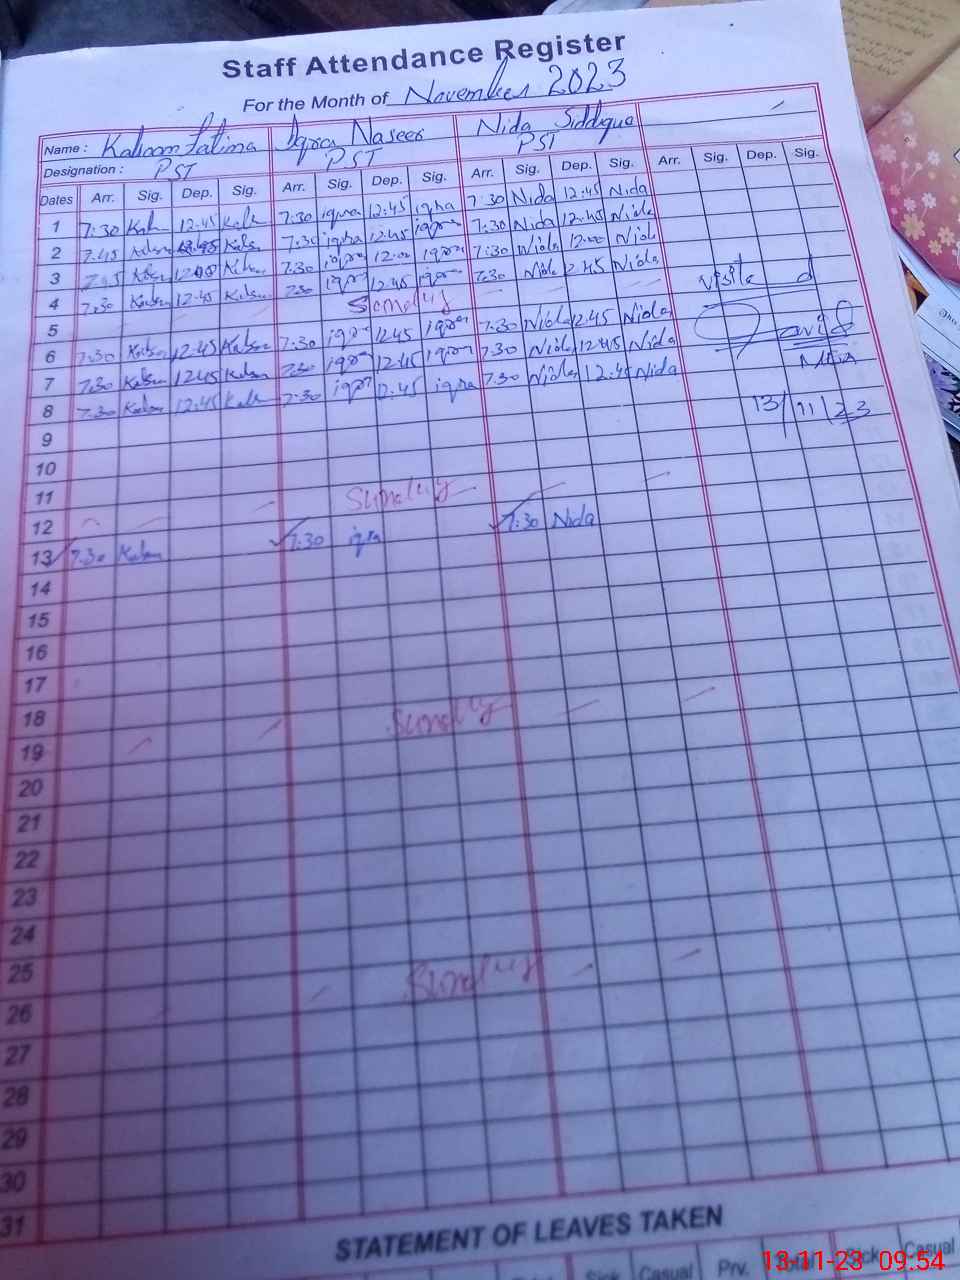 Staff Attendance Register
For the Month of November 2023
Name : Kalsoom Fatima Iqra Naseer Nida Siddiqua
Designation : PST PST PST
Dates Arr. Sig. Dep. Sig. Arr. Sig. Dep. Sig. Arr. Sig. Dep. Sig. Arr. Sig. Dep. Sig.
1 7:30 12:45 7:30 iqra 12:45 iqra 7:30 Nida 12:45 Nida
2 7:45 7:30 iqra 12:45 iqra 7:30 Nida 12:45 Nida
3 7:30 iqra 12:00 iqra 7:30 Nida 12:00 Nida
4 7:30 Kalsom 12:45 Kalsom 7:30 iqra 12:45 iqra 7:30 Nida 12:45 Nida
5 Sunday
6 7:30 Kalsom 12:45 Kalsom 7:30 iqra 12:45 iqra 7:30 Nida 12:45 Nida
7 7:30 Kalsom 12:45 Kalsom 7:30 iqra 12:45 iqra 7:30 Nida 12:45 Nida
8 7:30 Kalsom 12:45 7:30 iqra 12:45 iqra 7:30 Nida 12:45 Nida
Visited
13/11/23
9
10
11
12 Sunday
13 7:30 Kalsom 7:30 iqra 7:30 Nida
14
15
16
17
18
19 Sunday
20
21
22
23
24
25
26 Sunday
27
28
29
30
31
STATEMENT OF LEAVES TAKEN
Sick Casual Prv. Total Sick Casual
13-11-23 09:54